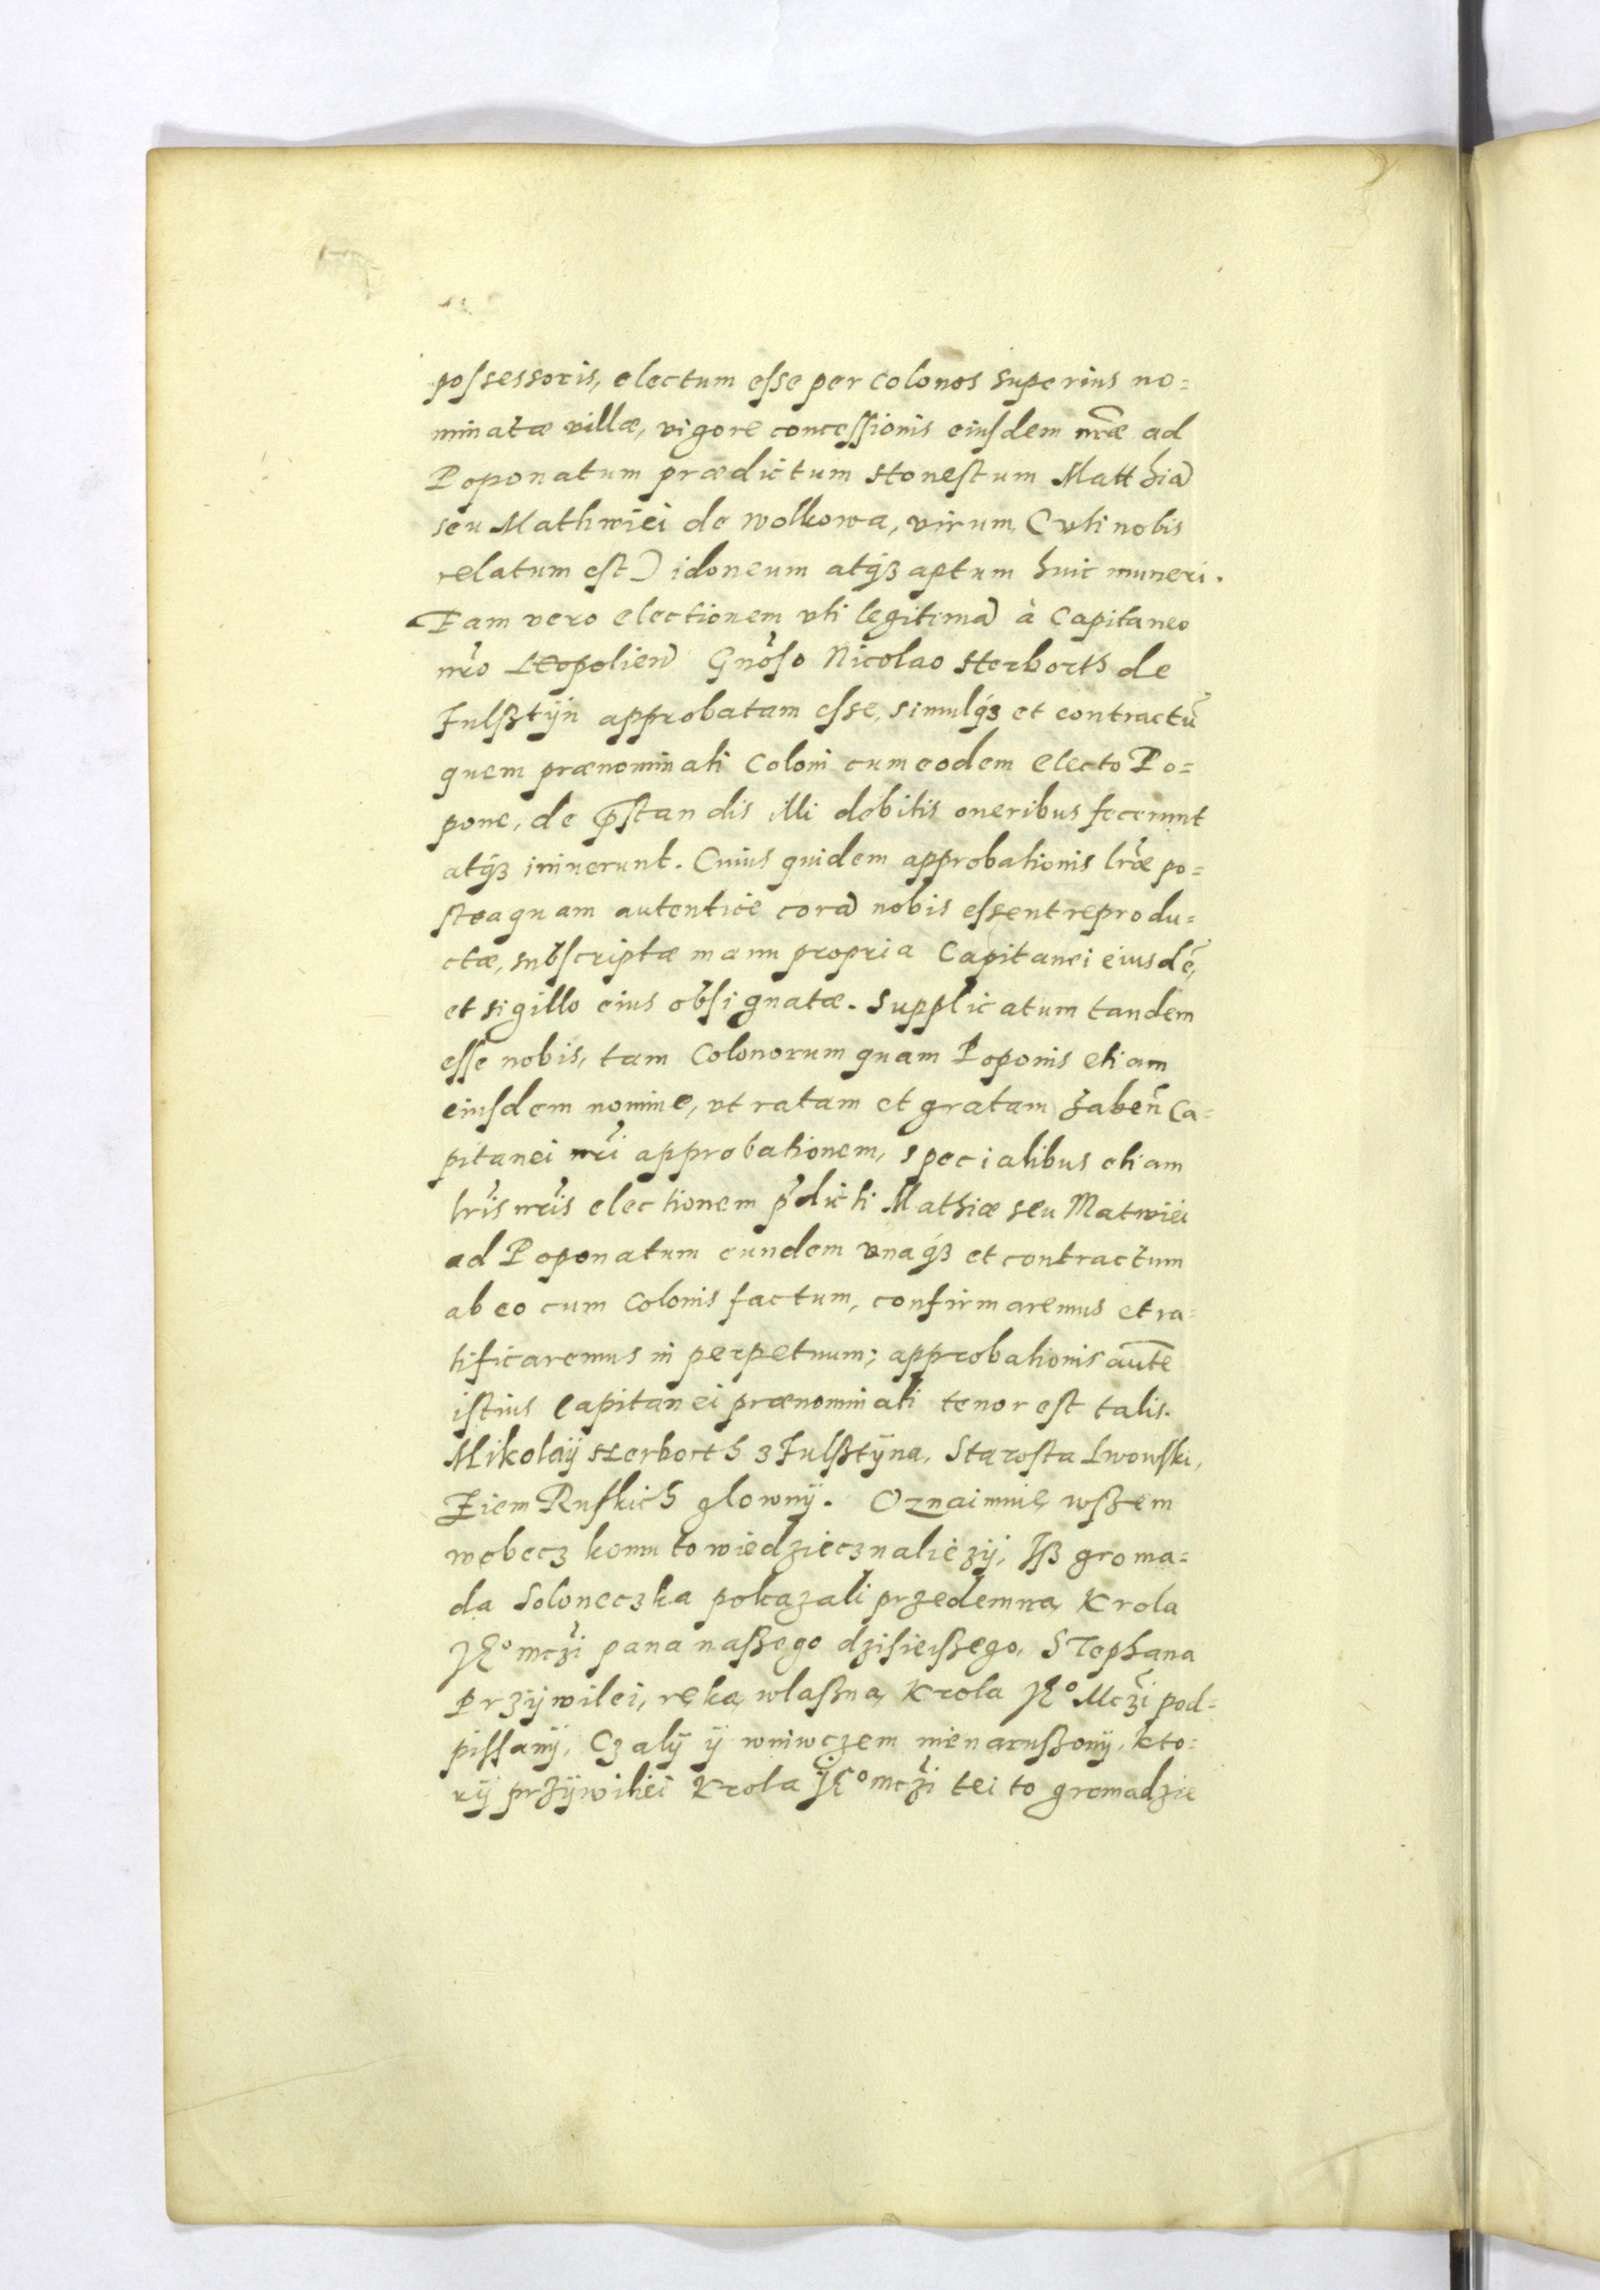 possessoris, electum esse per colonos superius no=
minatæ villæ, vigore concessionis eiusdem nr̃æ ad
Poponatum prædictum Honestum Matthiã
seu Mathwiei de Wolkowa, virum (vti nobis
relatum est) idoneum atq́ʒ aptum huic muneri.
Eam vero electionem vti legitimã à Capitaneo
nr̃o Leopolien̄ Gnõso Nicolao Herborth de
Fulßtÿn approbatam esse, simulq́ʒ et contractũ
quem prænominati Coloni cum eodem electo Po=
pone, de p̃standis illi debitis oneribus fecerunt
atq́ʒ inierunt. Cuius quidem approbationis lr̃æ po=
steaquam autentice corã nobis essent reprodu=
ctæ, subscriptæ manu propria Capitanei eiusdẽ,
et sigillo eius obsignatæ. Supplicatum tandem
esse nobis, tam Colonorum quam Poponis etiam
eiusdem nomine, vt ratam et gratam haben̄ Ca=
pitanei nr̃i approbationem, specialibus etiam
lr̃is nr̃is electionem p̃dicti Mathiæ seu Matwiei
ad Poponatum eundem vnaq́ʒ et contractum
ab eo cum Colonis factum, confirmaremus et ra=
tificaremus in perpetuum; approbationis aũte
istius Capitanei prænominati tenor est talis.
Mikolaÿ Herborth z Fulßtÿna, Starosta Lwowski,
Ziem Ruskich glownÿ. Oznaimuię wßem
wobecz komu to wiedziecz naliezÿ, Iß groma=
da Soloneczka pokazali przedemną Krola
Jeº mczi pana naßego dzisieißego, Stephana
Przÿwilei, ręką wlaßną Krola Jeº Mczi pod=
pissanÿ, Czalÿ ÿ wniwczem nienarußonÿ, kto=
rÿ przÿwiliei Krola Jeº mczi tei to gromadzie